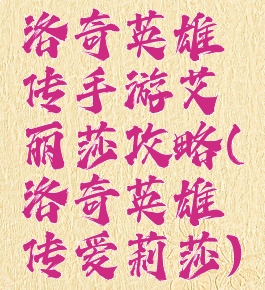 洛奇英雄
传手游艾
丽莎攻略(
洛奇英雄
传爱莉莎)